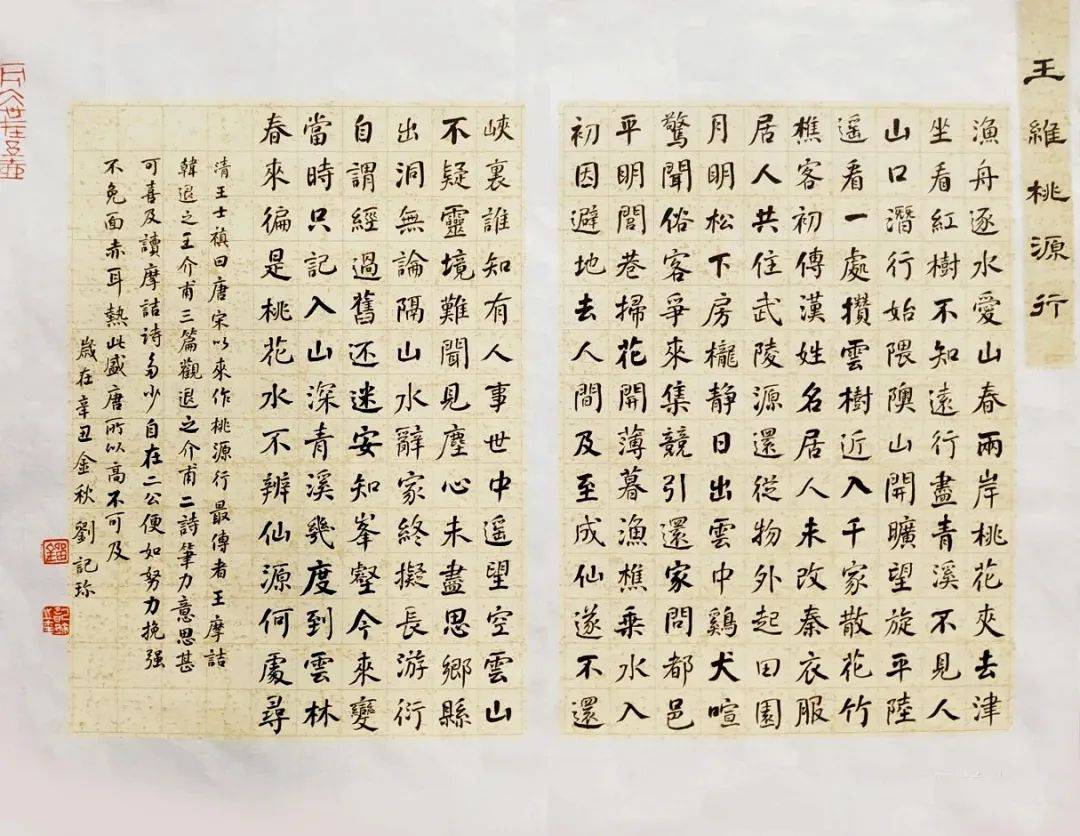 王維桃源行
漁舟逐水愛山春兩岸桃花夾去津
坐看紅樹不知遠行盡青溪不見人
山口潛行始隈隩山開曠望旋平陸
遥看一處攢雲樹近入千家散花竹
樵客初傳漢姓名居人未改秦衣服
居人共住武陵源還從物外起田園
月明松下房櫳静日出雲中鷄犬喧
驚聞俗客爭來集競引還家問都邑
平明閭巷掃花開薄暮漁樵乘水入
初因避地去人間及至成仙遂不還
峽裏誰知有人事世中遥望空雲山
不疑靈境難聞見塵心未盡思鄉縣
出洞無論隔山水辭家終擬長游衍
自謂經過舊还迷安知峯壑今來變
當時只記入山深青溪幾度到雲林
春來徧是桃花水不辨仙源何處尋
清王士禎曰唐宋以來作桃源行最傳者王摩詰
韓退之王介甫三篇觀退之介甫二詩筆力意思甚
可喜及讀摩詰詩多少自在二公便如努力挽强
不免面赤耳熱此盛唐所以高不可及
歲在辛丑金秋劉記珎